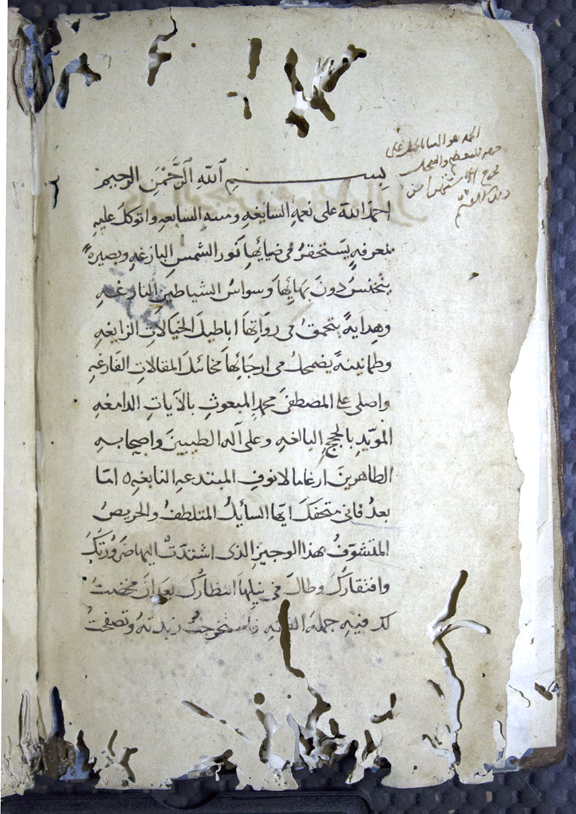 بسم الله الرحمن الرحيم
احمد الله على نعمه السابغه ومننه السايعه واتوكل عليه
بمعرفه يستحقر فى ضيائها نور الشمس البازغه وبصيره
ينخنس دون بهائها وسواس الشياطين النازغه
وهداية يتمحق فى روائها اباطيل الخيالات الزايغه
وطمانينة يضمحل فى ارجائها مخائل المقالات الفارغه
واصلى على المصطفى محمد المبعوث بالآيات الدامغه
المويد بالحجج البالغه وعلى آله الطيبين واصحابه
الطاهرين ارغاما لانوف المبتدعه النابغه اما
بعد فانى متحفك ايها السايل المتلطف والحريص
المتشوف بهذا الوجيز الذى اشتدت اليه ضرورتك
وافتقارك وطال فى نيلها انتظارك بعد ان مخضت
لك فيه جملة الفقه فاستخرجت زبدته وتصفحت